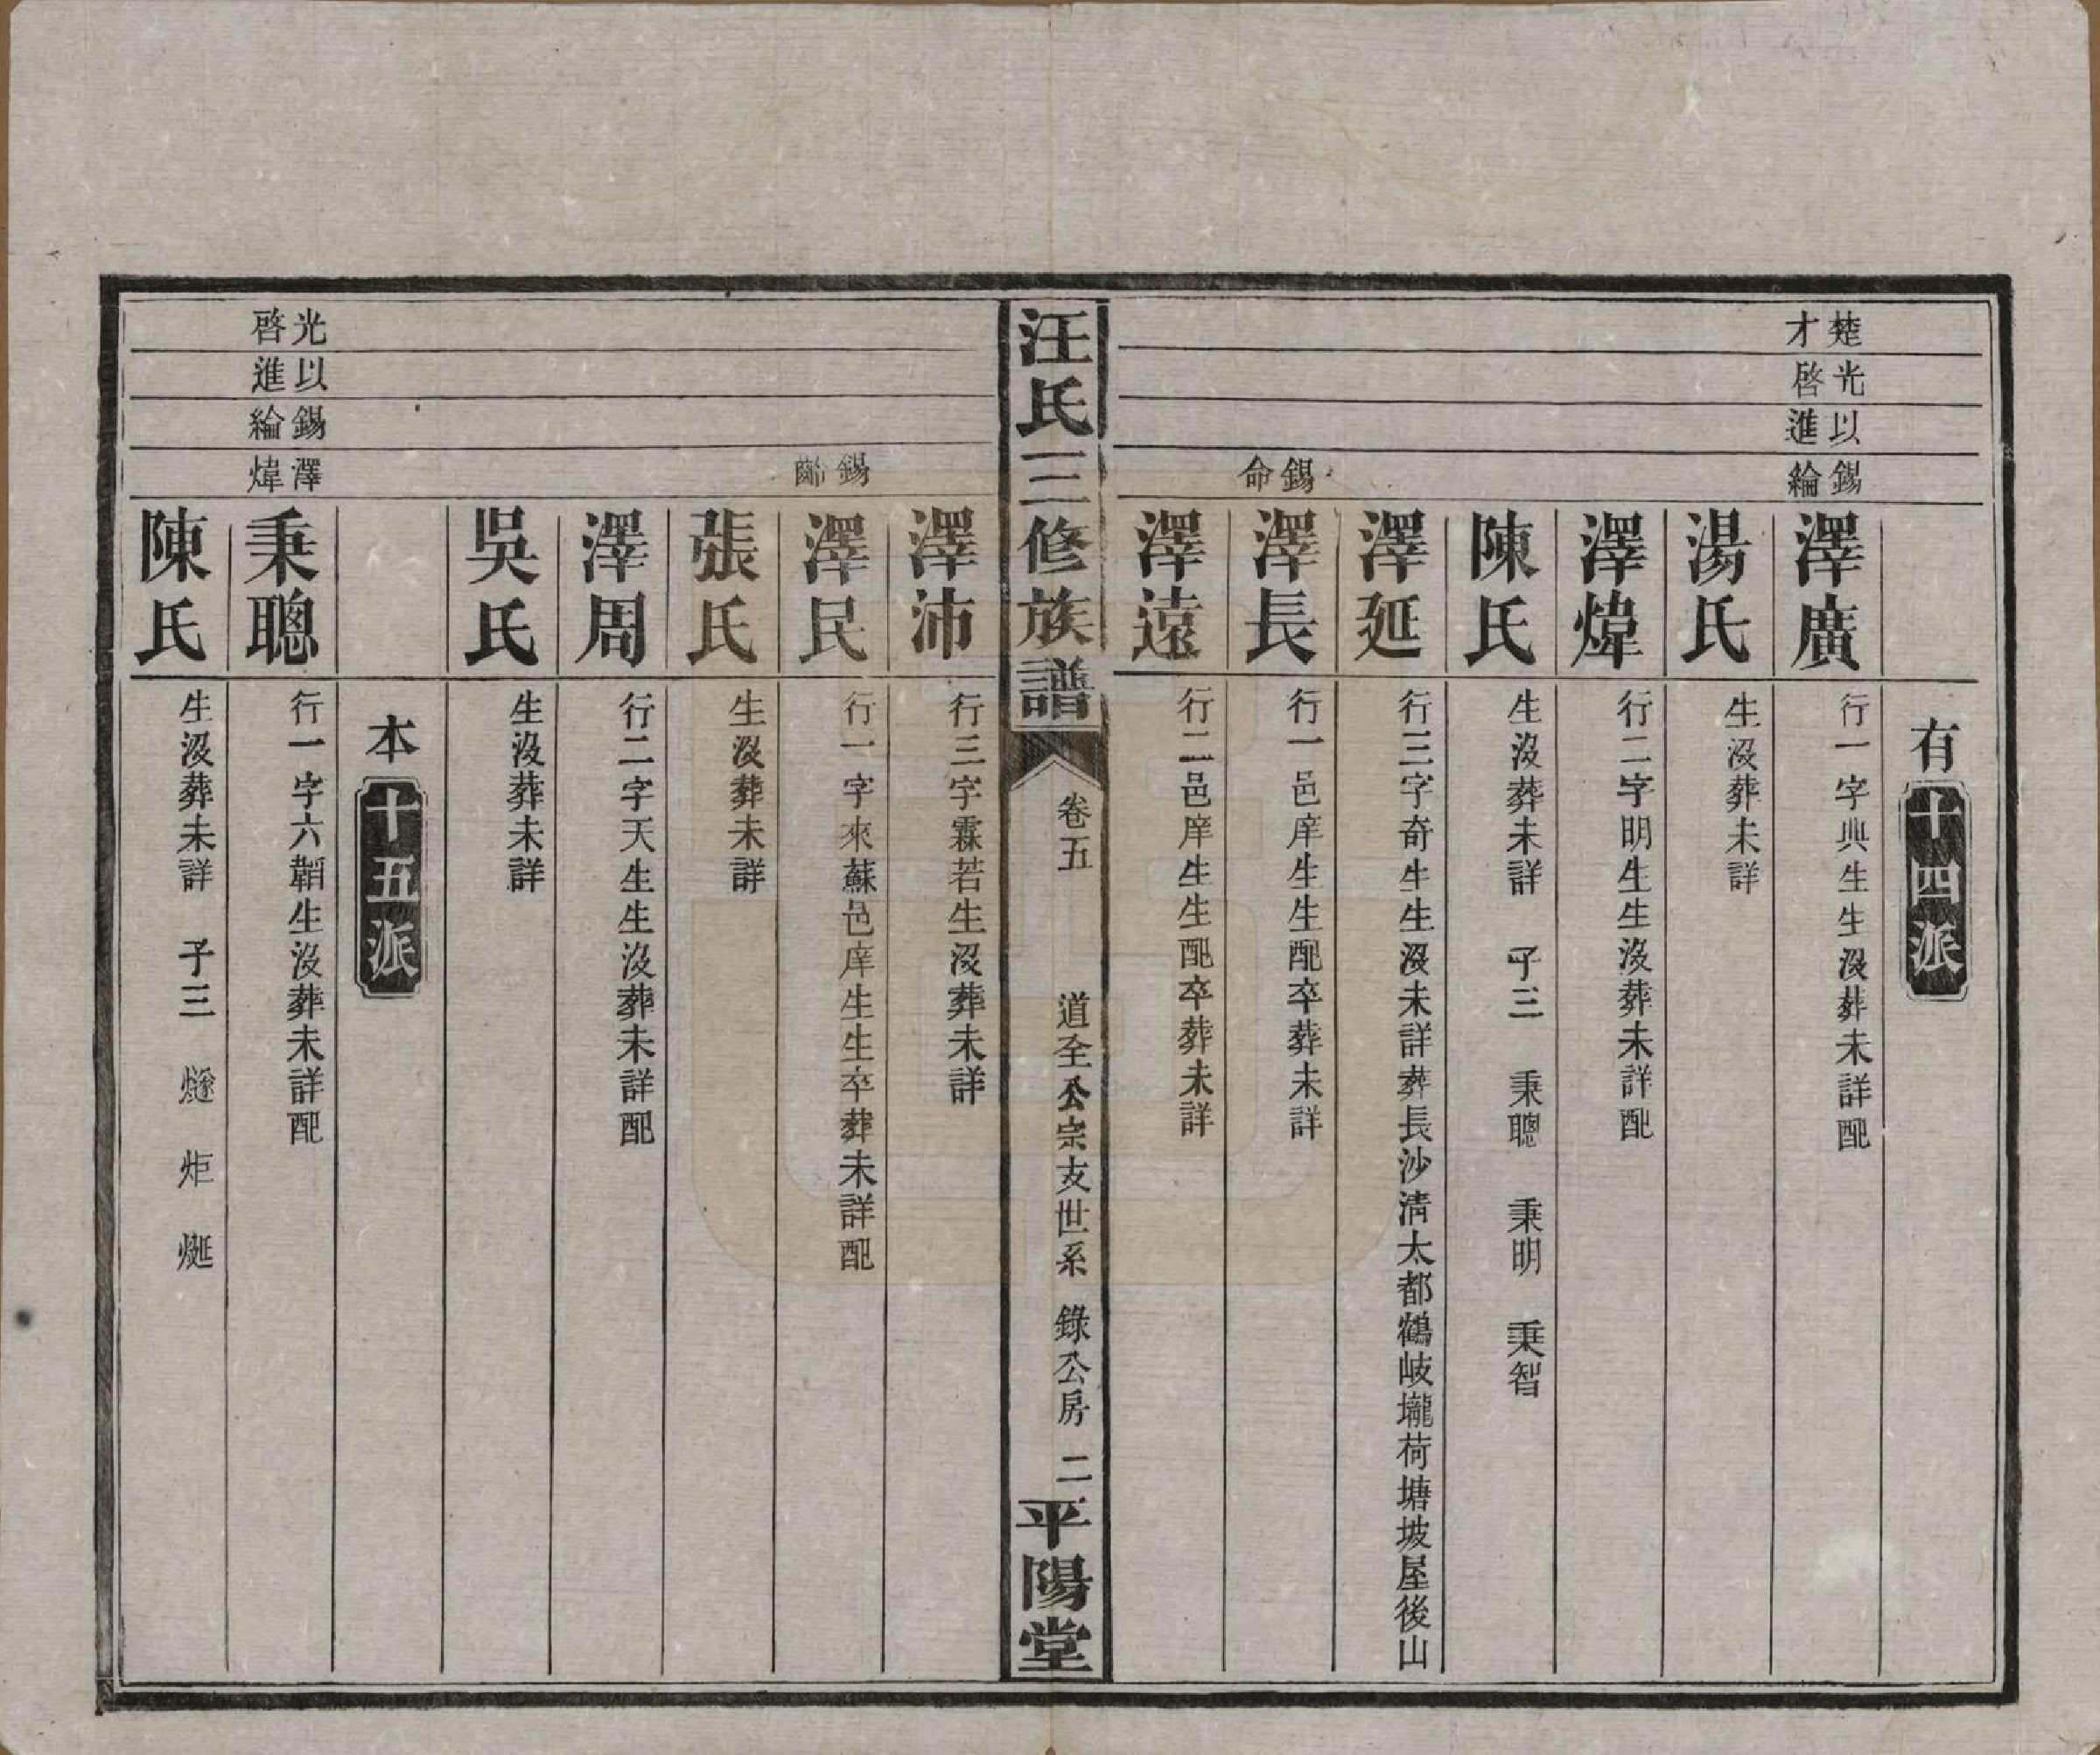 有十四派
楚才
光啓
以進
錫綸
澤廣 行一字典生生沒葬未詳配
湯氏 生沒葬未詳
澤煒 行二字明生生沒葬未詳配
陳氏 生沒葬未詳 子三 秉聰 秉明 秉智
澤延 行三字奇生生沒未詳葬長沙清太都鶴岐壠荷塘坡屋後山
錫命
澤長 行一邑庠生生配卒葬未詳
澤遠 行二邑庠生生配卒葬未詳
汪氏三修族譜 卷五 道全公宗支世系 錄公房 二 平陽堂
澤沛 行三字霖若生沒葬未詳
錫
澤民 行一字來蘇邑庠生生卒葬未詳配
張氏 生沒葬未詳
澤周 行二字天生生沒葬未詳配
吳氏 生沒葬未詳
本十五派
光啓
以進
錫綸
澤煒
秉聰 行一字六韜生沒葬未詳配
陳氏 生沒葬未詳 子三 燧 炬 烻